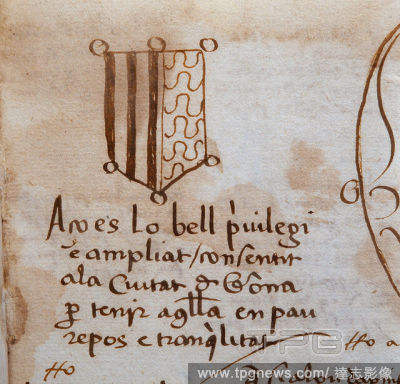 Axo es Lo bell p̀uilegi
e ampliat / consentit
ala Ciutat d Gẽona
ꝑ tenir aq̃lla en pau
repos e tranq̀litat
ffo a
ffo
TPG
www.tpgnews.com/達志影像